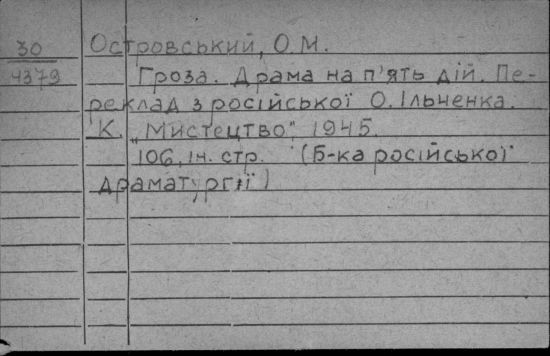 30
4379
Островський, О.М.
Гроза. Драма на п'ять дій. Пе-
реклад з російської О. Ільченка.
К. „Мистецтво“, 1945.
106, ін. стр. (Б-ка російської
драматургії)